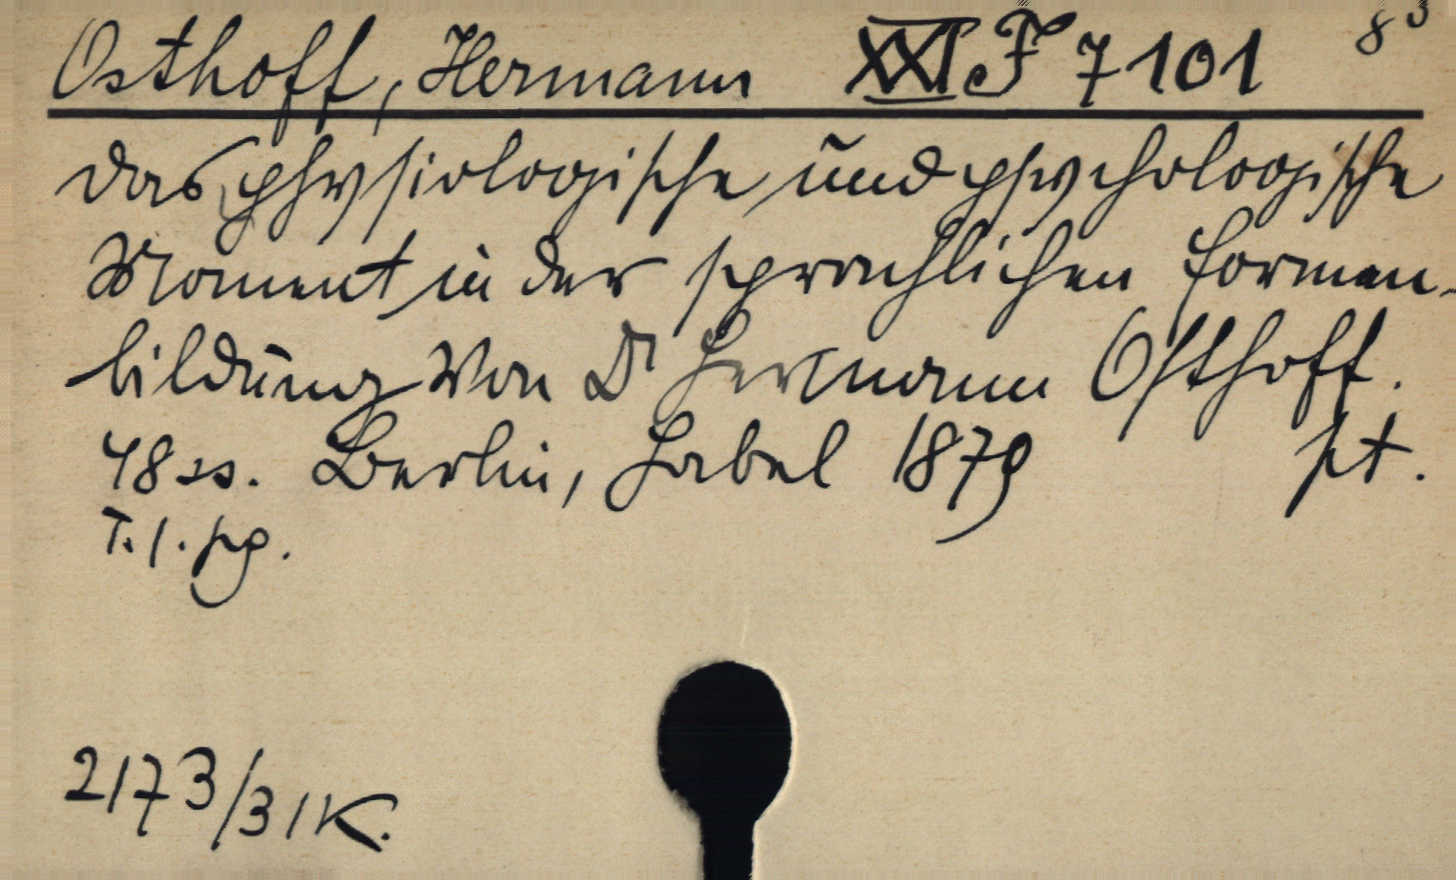 Osthoff, Hermann XXI F 7101 8°
Das physiologische und psychologische
Moment in der sprachlichen Formen-
bildung von Dr Hermann Osthoff.
48 ss. Berlin, Habel 1879 pt.
T. 1. pg.
2173/31 K.